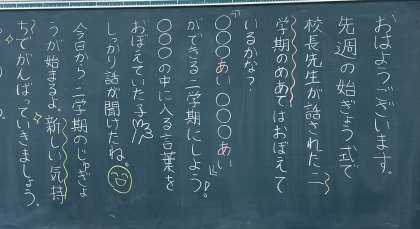 おはようございます。
先週の始ぎょう式で
校長先生が話された二
学期のめあてはおぼえて
いるかな?
「○○○あい○○○あい
ができる二学期にしよう。」
○○○の中に入る言葉を
おぼえていた子
しっかり話が聞けたね。
今日から二学期のじゅぎょ
うが始まるよ。新しい気持
ちでがんばっていきましょう。